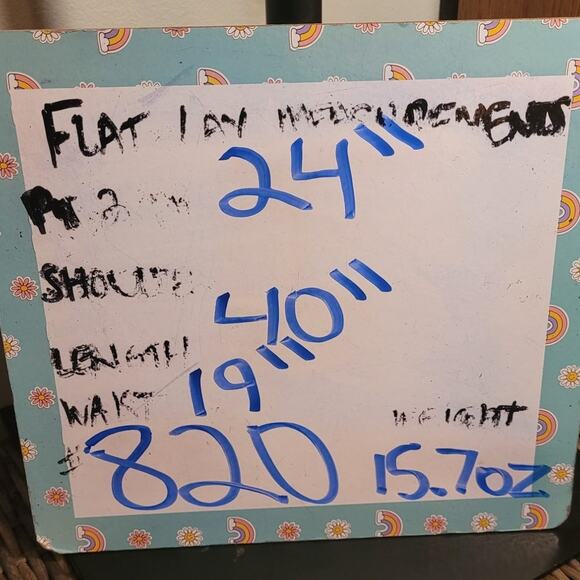 FLAT LAY MEASUREMENTS
24"
SHOULDE
LENGTH 40"
WAIST 19"
WEIGHT
# 820 15.7oz